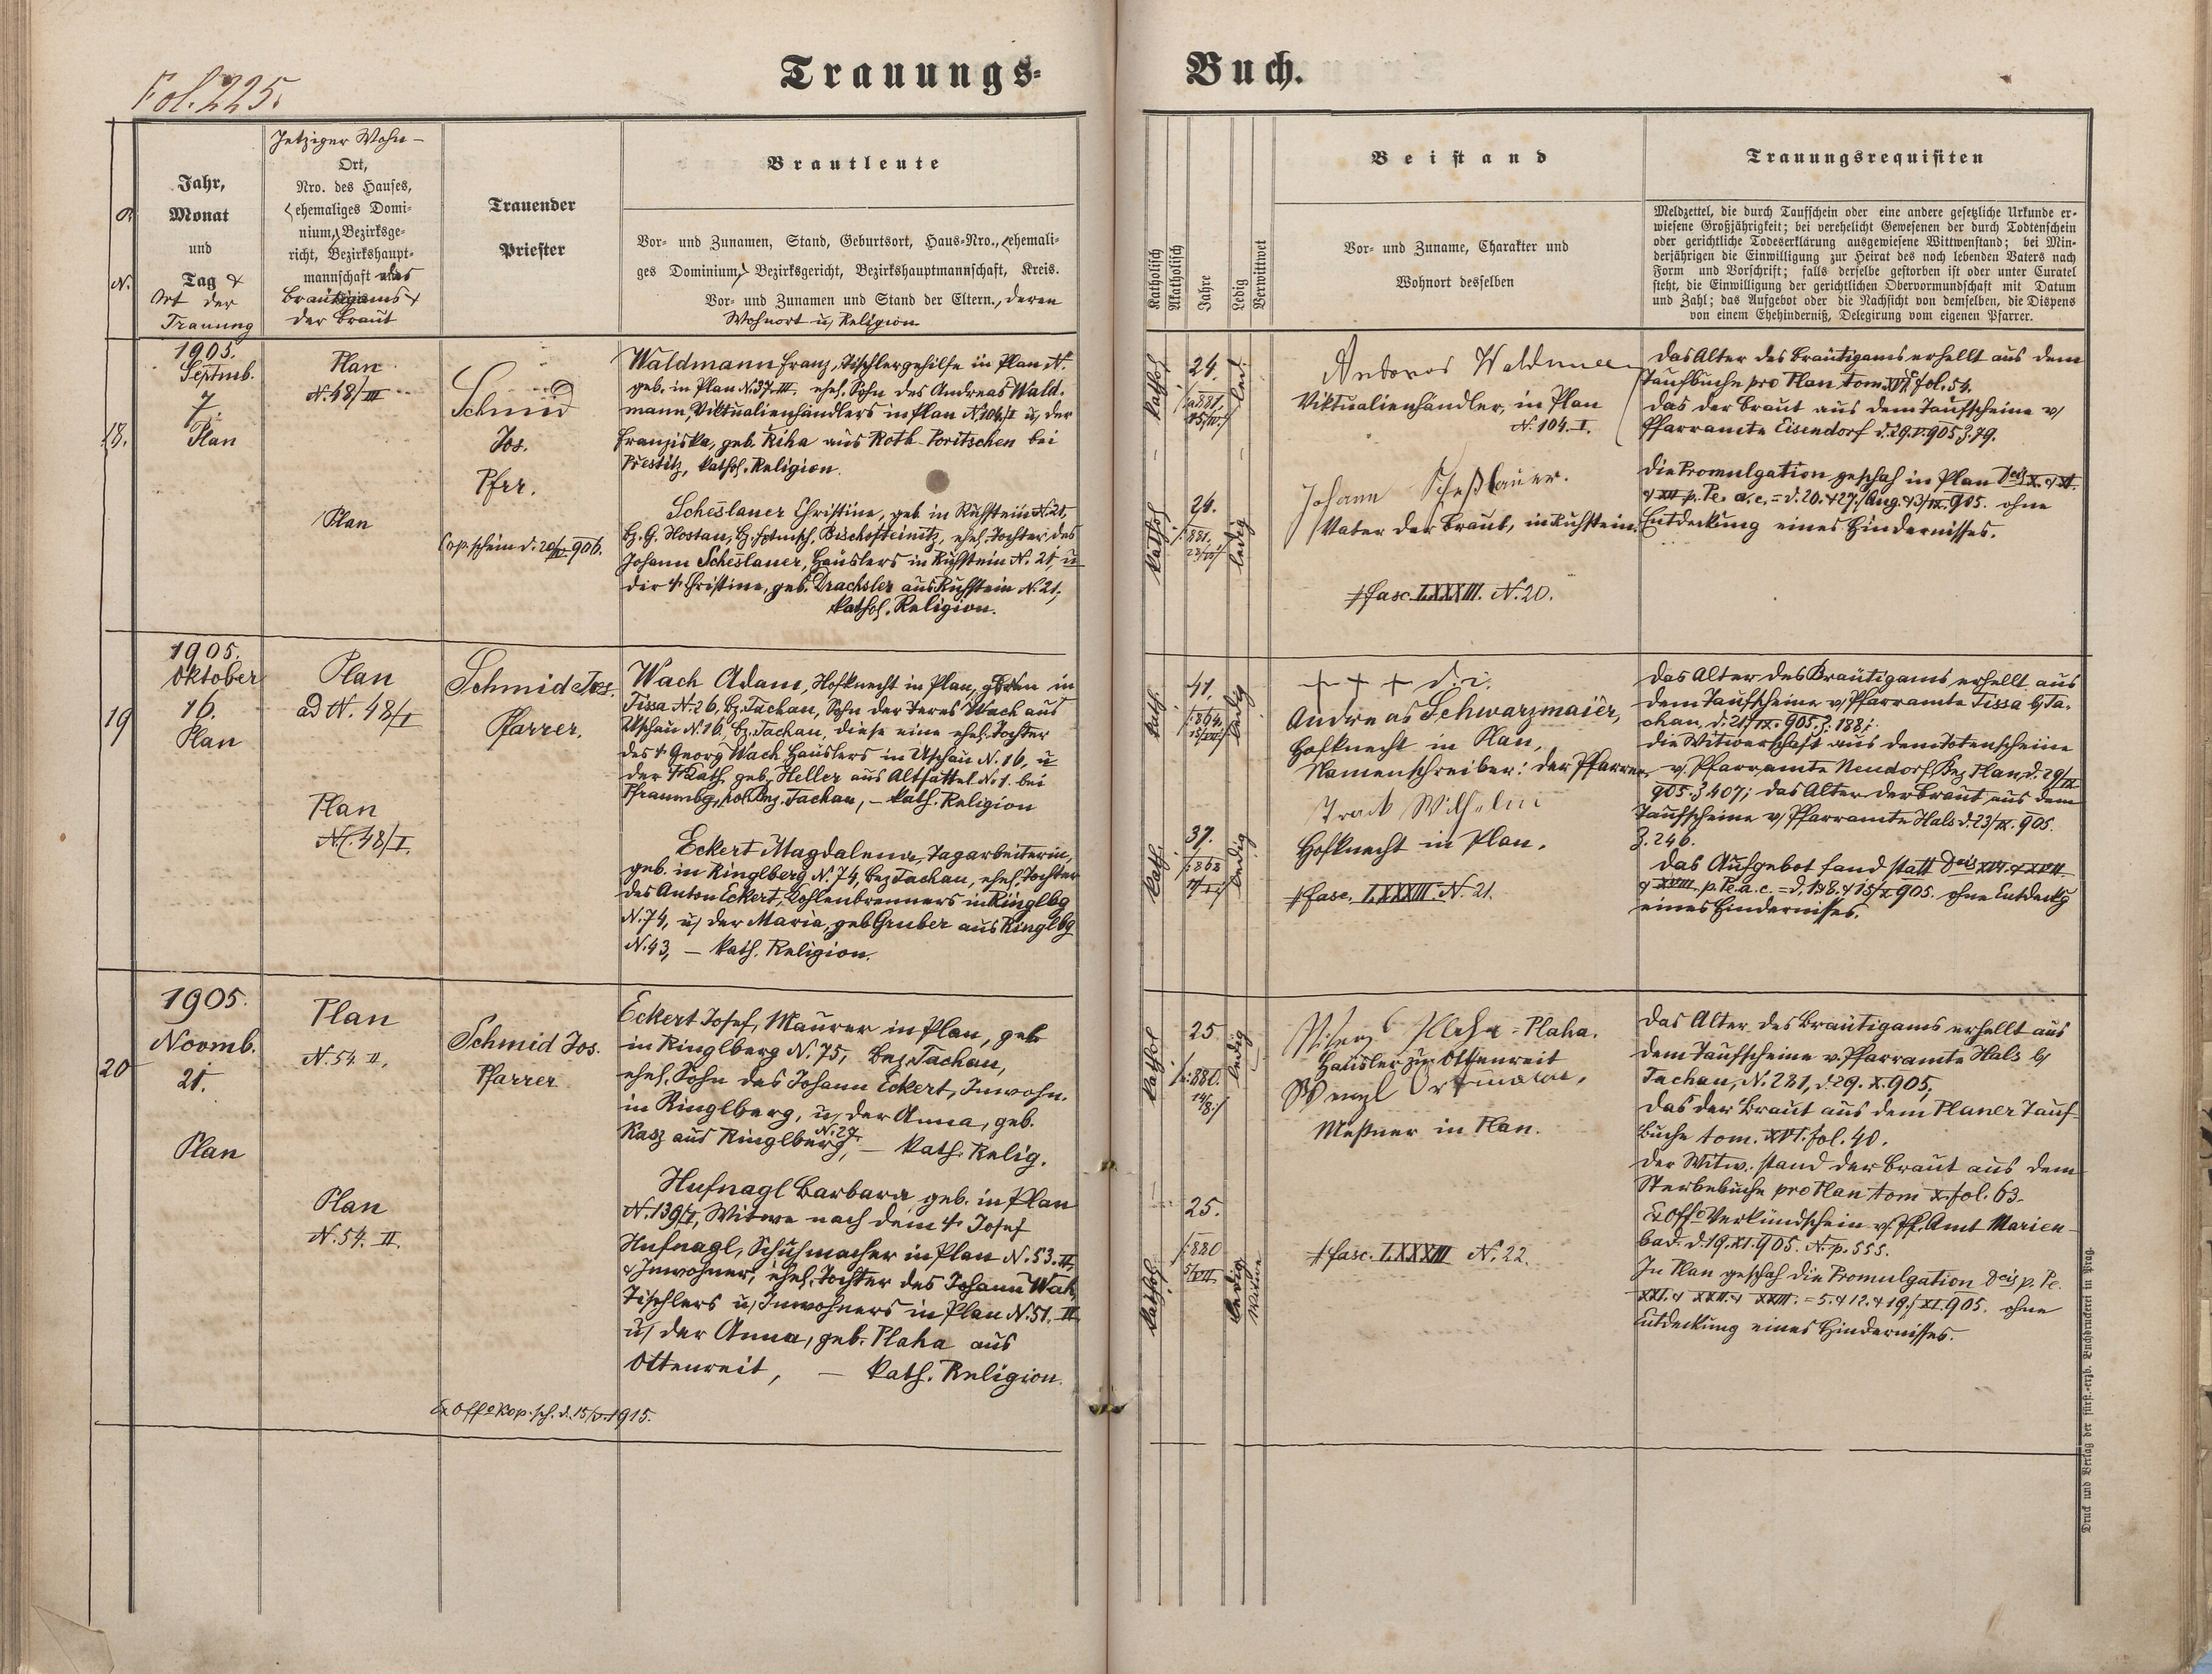 Fol. 225.
Trauungs-
Buch.
Jetziger Wohn-
Ort,
Nro. des Hauses,
(ehemaliges Domi-
nium,) Bezirksge-
richt, Bezirkshaupt-
mannschaft des
Bräutigams &
der Braut
Jahr,
Monat
und
Tag &
Ort der
Trauung
Trauender
Priester
Brautleute
Vor- und Zunamen, Stand, Geburtsort, Haus-Nro., (ehemali-
ges Dominium,) Bezirksgericht, Bezirkshauptmannschaft, Kreis.
Vor- und Zunamen und Stand der Eltern, deren
Wohnort u. Religion
Katholisch
Akatholisch
Jahre
Ledig
Verwittwet
Beistand
Vor- und Zuname, Charakter und
Wohnort desselben
Trauungsrequisiten
Meldzettel, die durch Taufschein oder eine andere gesetzliche Urkunde er-
wiesene Großjährigkeit; bei verehelicht Gewesenen der durch Todtenschein
oder gerichtliche Todeserklärung ausgewiesene Wittwenstand; bei Min-
derjährigen die Einwilligung zur Heirat des noch lebenden Vaters nach
Form und Vorschrift; falls derselbe gestorben ist oder unter Curatel
steht, die Einwilligung der gerichtlichen Obervormundschaft mit Datum
und Zahl; das Aufgebot oder die Nachsicht von demselben, die Dispens
von einem Ehehinderniß, Delegirung vom eigenen Pfarrer.
18.
1905.
Septmb.
7.
Plan
Plan
N. 48/III
Plan
Cop. schein d. 20/ 906.
Schmid
Jos.
Pfrr.
Waldmann Franz, Tischlergehilfe in Plan N.
geb. in Plan N. 37. III. ehel. Sohn des Andreas Wald-
mann, Viktualienhändlers in Plan N. 104/I u. der
Franziska, geb. Řiha aus Roth-Poritschen bei
Přestitz, kathol. Religion.
Scheslauer Christine, geb. in Ruhstein N. 21,
Bz. G. Hostau, Bz. Hptmsch. Bischofteinitz, ehel. Tochter des
Johann Scheslauer, Häuslers in Ruhstein N. 21, u.
der † Christine, geb. Drachsler aus Ruhstein N. 21,
kathol. Religion.
kathol
24.
/:881.
led.
kathol
24.
/:881.
ledig
Andreas Waldman
Viktualienhändler, in Plan
N. 104. I.
Johann Scheßlauer.
Vater der Braut, in Ruhstein.
# fasc. LXXXIII. N. 20.
Das Alter des Bräutigams erhellt aus dem
Taufbuche pro Plan tom. XVI fol. 54.
Das der Braut aus dem Taufscheine v/
Pfarramte Eisendorf d. 29. V. 905 Z. 79.
Die Promulgation geschah in Plan Dcis X. & XI.
& XII p. Pe. a. c. = d. 20. & 27./Aug. & 3/IX. 905. ohne
Entdeckung eines Hindernisses.
19
1905.
Oktober
16.
Plan
Plan
ad N. 48/I
Plan
N. 48/I.
Schmid Jos.
Pfarrer.
Wach Adam, Hofknecht in Plan, geboren in
Tissa N. 26, Bz. Tachau, Sohn der Teres Wach aus
Uschau N. 16, Bz. Tachau, diese eine ehel. Tochter
des † Georg Wach Häuslers in Uschau N. 16, u
der † Kath. geb. Heller aus Altsattel N. 1. bei
Pfraumbg, Bez. Tachau, – kath. Religion
Eckert Magdalena, Tagarbeiterin,
geb. in Ringlberg N. 74, Bez Tachau, ehel. Tochter
des Anton Eckert, Kohlenbrenners in Ringlbg
N. 74, u. der Maria, geb Gruber aus Ringlbg
N. 43, – kath. Religion.
kath.
41.
/:864.
ledig
kath.
37.
/:868
ledig
+ + + d. i.
Andreas Schwarzmaier,
Hofknecht in Plan,
Namenschreiber: der Pfarrer
Track Wilhelm
Hofknecht in Plan.
# fasc. LXXXIII. N. 21.
Das Alter des Bräutigams erhellt aus
dem Taufscheine v/ Pfarramte Tissa b/ Ta-
chau, d. 21/IX. 905. Z. 188;
die Witwerschaft aus dem Totenscheine
v. Pfarramte Neudorf Bez Plan, d. 29/IX.
905. Z 407; das Alter der Braut aus dem
Taufscheine v/ Pfarramte Hals d. 23/IX. 905.
Z. 246.
Das Aufgebot fand statt Dcis XVI. & XVII
& XVIII p. Pe. a. c. = d. 1. & 8. & 15/X 905. ohne Entdeckg
eines Hindernisses.
20
1905.
Novmb.
21.
Plan
Plan
N. 54 II.
Plan
N. 54. II.
Schmid Jos.
Pfarrer
Eckert Josef, Maurer in Plan, geb
in Ringlberg N. 75, Bez. Tachau,
ehel. Sohn des Johann Eckert, Inwohn.
in Ringlberg, u. der Anna, geb.
Kasz aus Ringlberg, N. 27. – kath. Relig.
Hufnagl Barbara, geb. in Plan
N. 139/I, Witwe nach dem † Josef
Hufnagl, Schuhmacher in Plan N. 53. II
& Inwohner, ehel. Tochter des Johann Wah,
Tischlers u. Inwohners in Plan N. 51. II
u. der Anna, geb. Plaha aus
Ottenreit, – kath. Religion.
Ex Offo Kop. sch. d. 15/V. 1915.
kathol
25
/:880.
14/8:/
ledig
kathol.
25.
/:880
5/VII
ledig
Witwe
Plaha.
Häusler zu Ottenreit
Wenzl
Meßner in Plan.
# fasc. LXXXIII N. 22.
Das Alter des Bräutigams erhellt aus
dem Taufscheine v. Pfarramte Hals b/
Tachau, N. 281, d. 29. X. 905,
Das der Braut aus dem Planer Tauf-
buche tom. XVI. fol. 40.
Der Witw. stand der Braut aus dem
Sterbebuche pro Plan tom X. fol. 63.
Ex Offo Verkündschein v/ Pf. Amt Marien-
bad. d. 19. XI. 905. N. p. 555.
In Plan geschah die Promulgation Dcis p. Pe.
XXI. & XXII. & XXIII. = 5. & 12. & 19./XI. 905. ohne
Entdeckung eines Hindernisses.
Druck und Verlag der fürst.-erzb. Buchdruckerei in Prag.